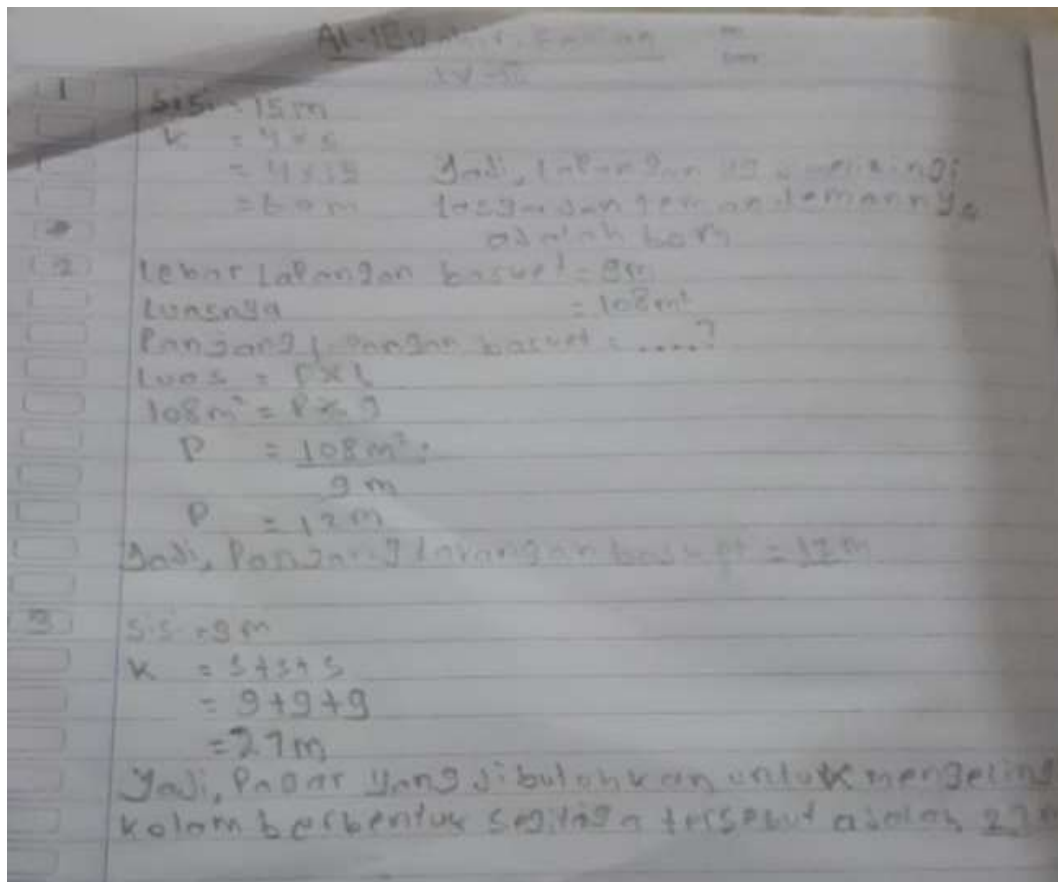 m
1
Sisi = 15 m
K = 4 x s
= 4 x 15 Jadi, lapangan yg
= 60 m
adalah 60 m
2 Lebar lapangan basket = 9m
Luasnya = 108 m²
Panjang lapangan basket = ....?
Luas = P x L
108m² = P x 9
P = 108 m²
9 m
P = 12 m
Jadi, Panjang lapangan basket = 12 m
3 Sisi = 9 m
K = s + s + s
= 9 + 9 + 9
= 27 m
Jadi, Pagar yang dibutuhkan untuk mengeling
kolam berbentuk segitiga tersebut adalah 27 m